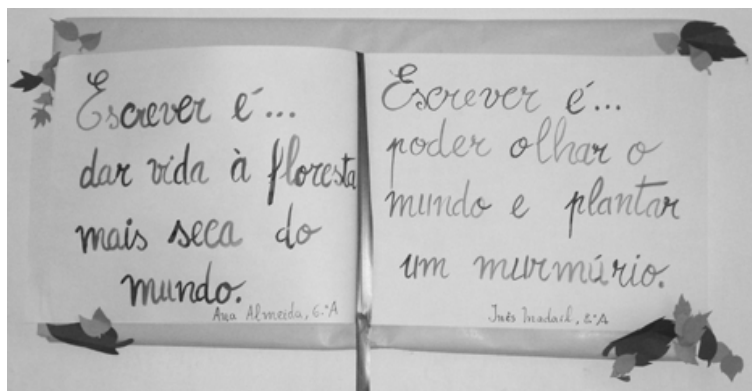 Escrever é...
dar vida à floresta
mais seca do
mundo.
Ana Almeida, 6.ºA
Escrever é...
poder olhar o
mundo e plantar
um murmúrio.
Inês